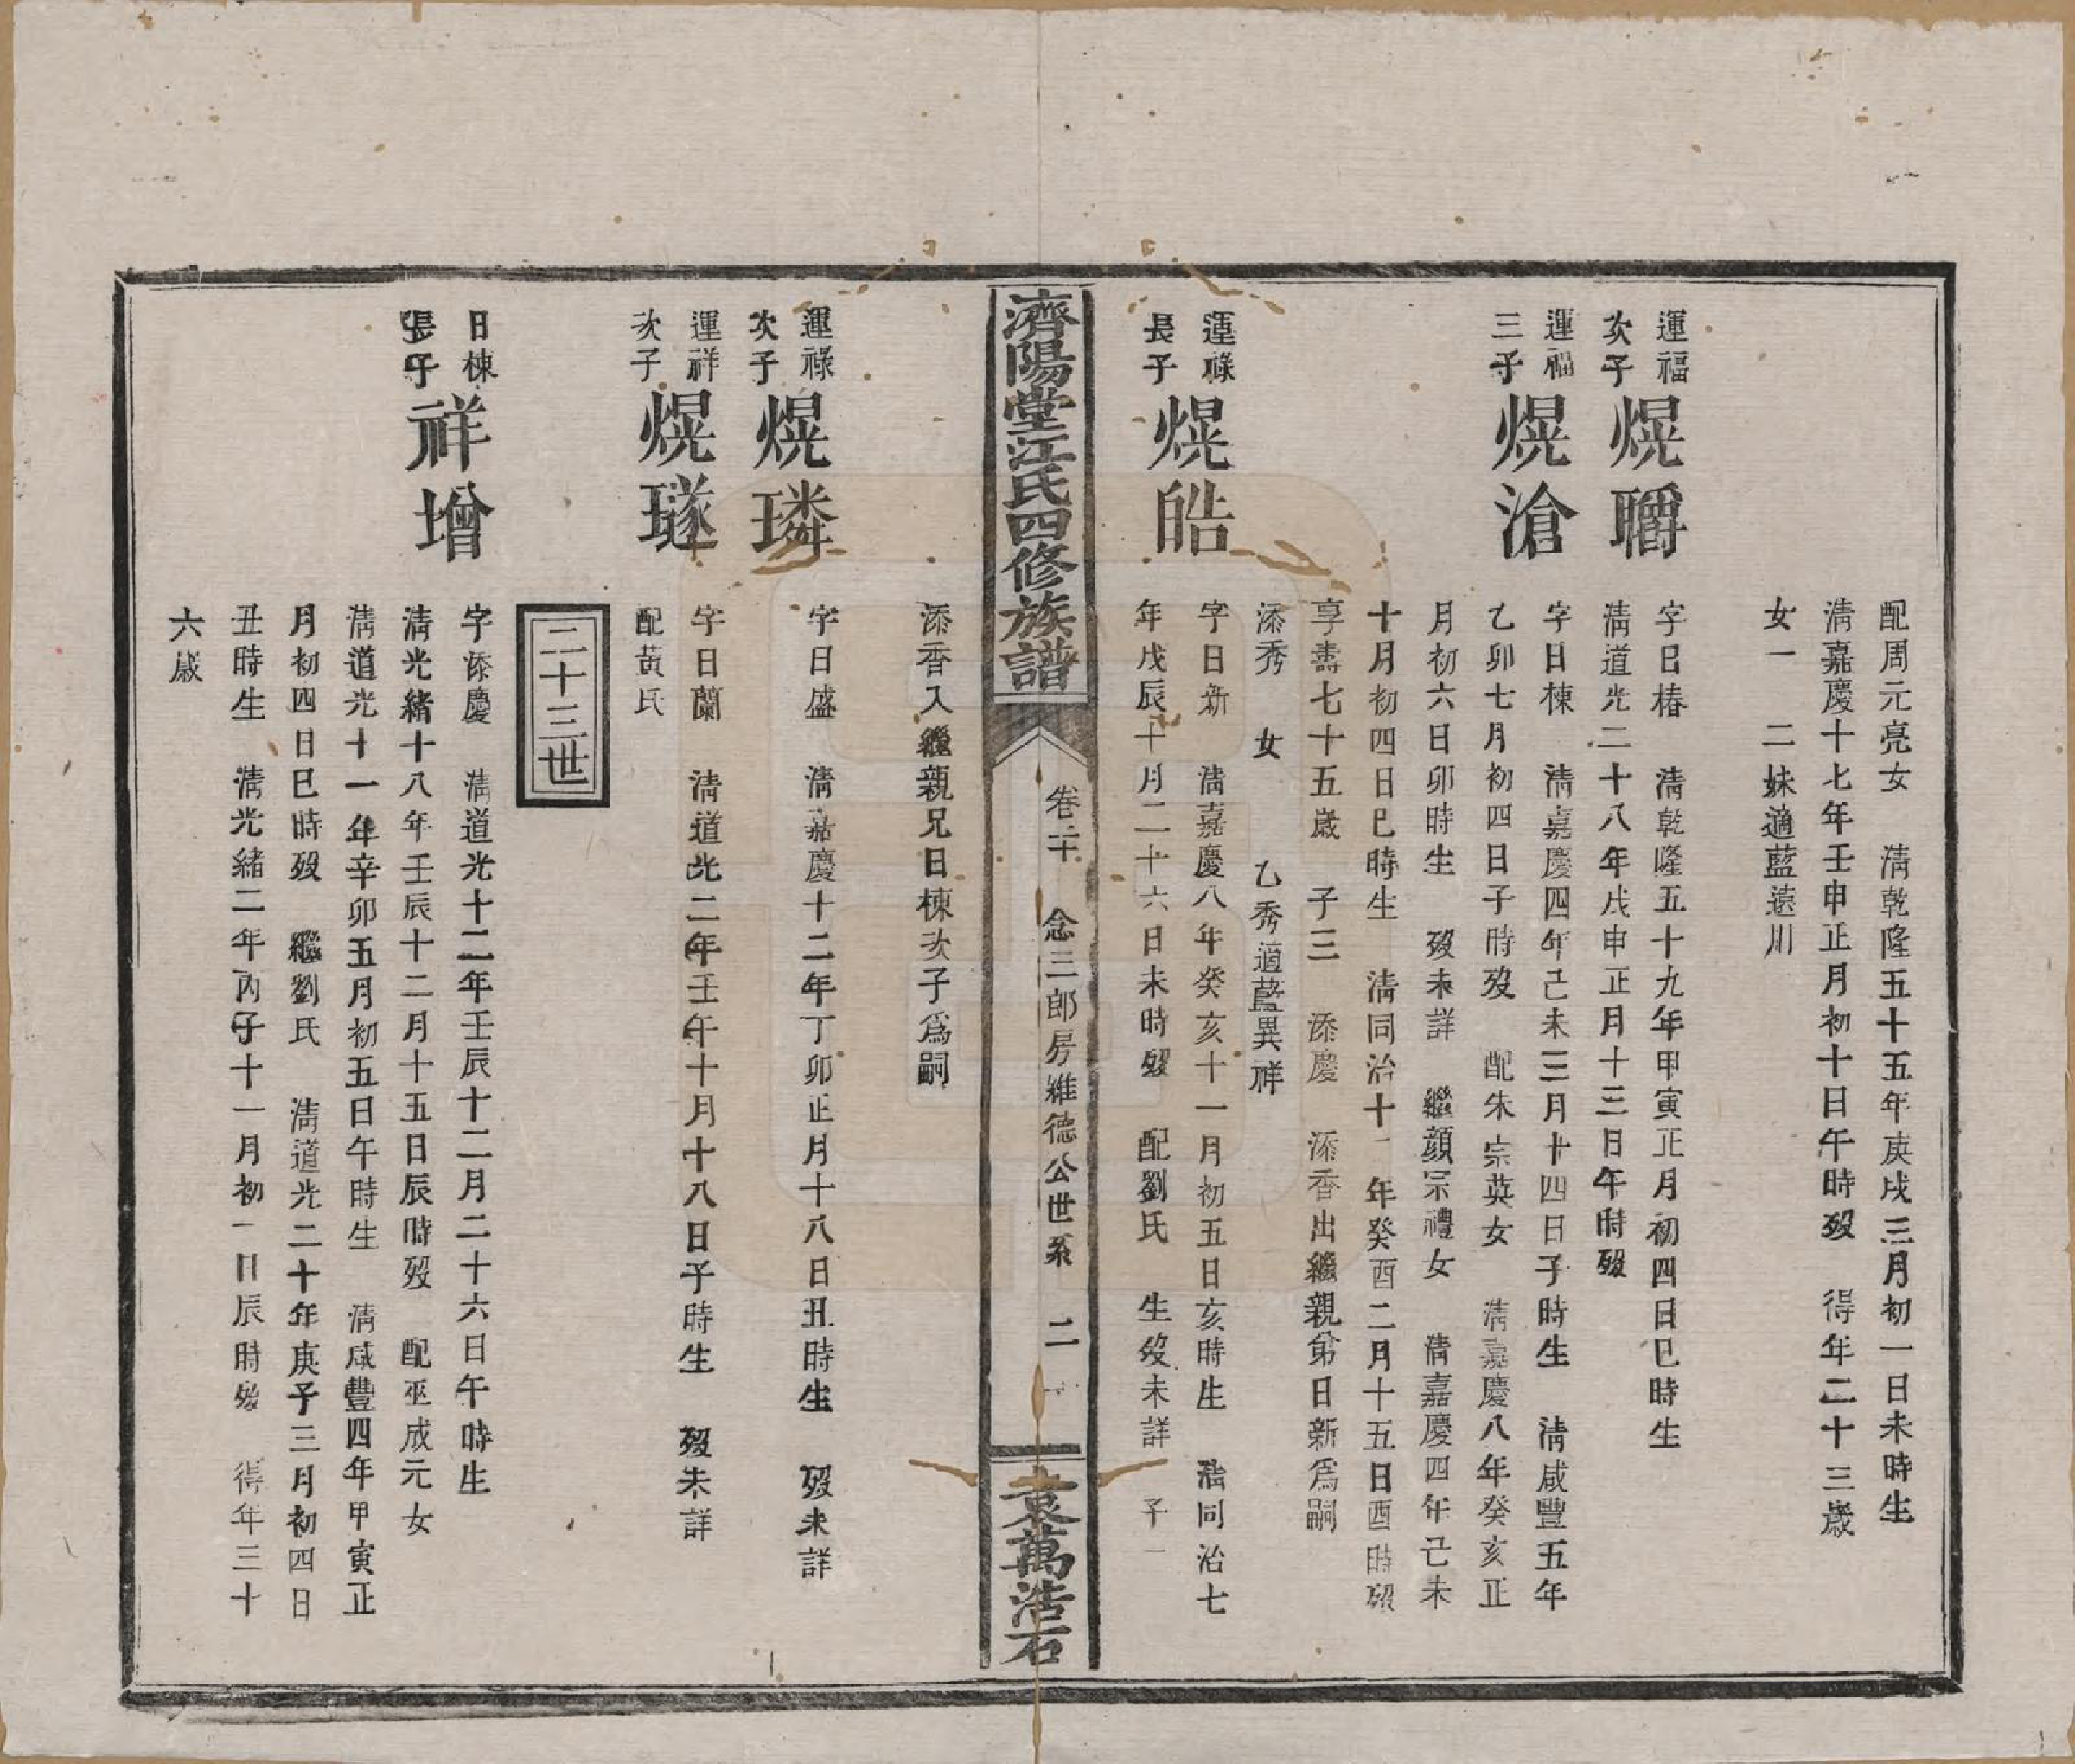 配周元亮女　淸乾隆五十五年庚戌三月初一日未時生
淸嘉慶十七年壬申正月初十日午時歿　得年二十三歲
女一　二妹適藍遠川
運福
次子
熀㬭
字日椿　淸乾隆五十九年甲寅正月初四日巳時生
淸道光二十八年戊申正月十三日午時歿
運福
三子
熀滄
字日棟　淸嘉慶四年己未三月十四日子時生　淸咸豐五年
乙卯七月初四日子時歿　配朱宗英女　淸嘉慶八年癸亥正
月初六日卯時生　歿未詳　繼顏宗禮女　淸嘉慶四年己未
十月初四日巳時生　淸同治十一年癸酉二月十五日酉時歿
享壽七十五歲　子三　添慶　添香出繼親弟日新爲嗣
添秀　女　乙秀適藍異祥
運祿
長子
熀皓
字日新　淸嘉慶八年癸亥十一月初五日亥時生　淸同治七
年戊辰十月二十六日未時歿　配劉氏　生歿未詳　子一
濟陽堂江氏四修族譜
卷二十　念三郎房維德公世系　二
袁萬浩石
添香入繼親兄日棟次子爲嗣
運祿
次子
熀璘
字日盛　淸嘉慶十二年丁卯正月十八日丑時生　歿未詳
運祥
次子
熀璲
字日蘭　淸道光二年壬午十月十八日子時生　歿未詳
配黃氏
二十三世
日棟
長子
祥增
字添慶　淸道光十二年壬辰十二月二十六日午時生
淸光緒十八年壬辰十二月十五日辰時歿　配巫成元女
淸道光十一年辛卯五月初五日午時生　淸咸豐四年甲寅正
月初四日巳時歿　繼劉氏　淸道光二十年庚子三月初四日
丑時生　淸光緒二年丙子十一月初一日辰時歿　得年三十
六歲